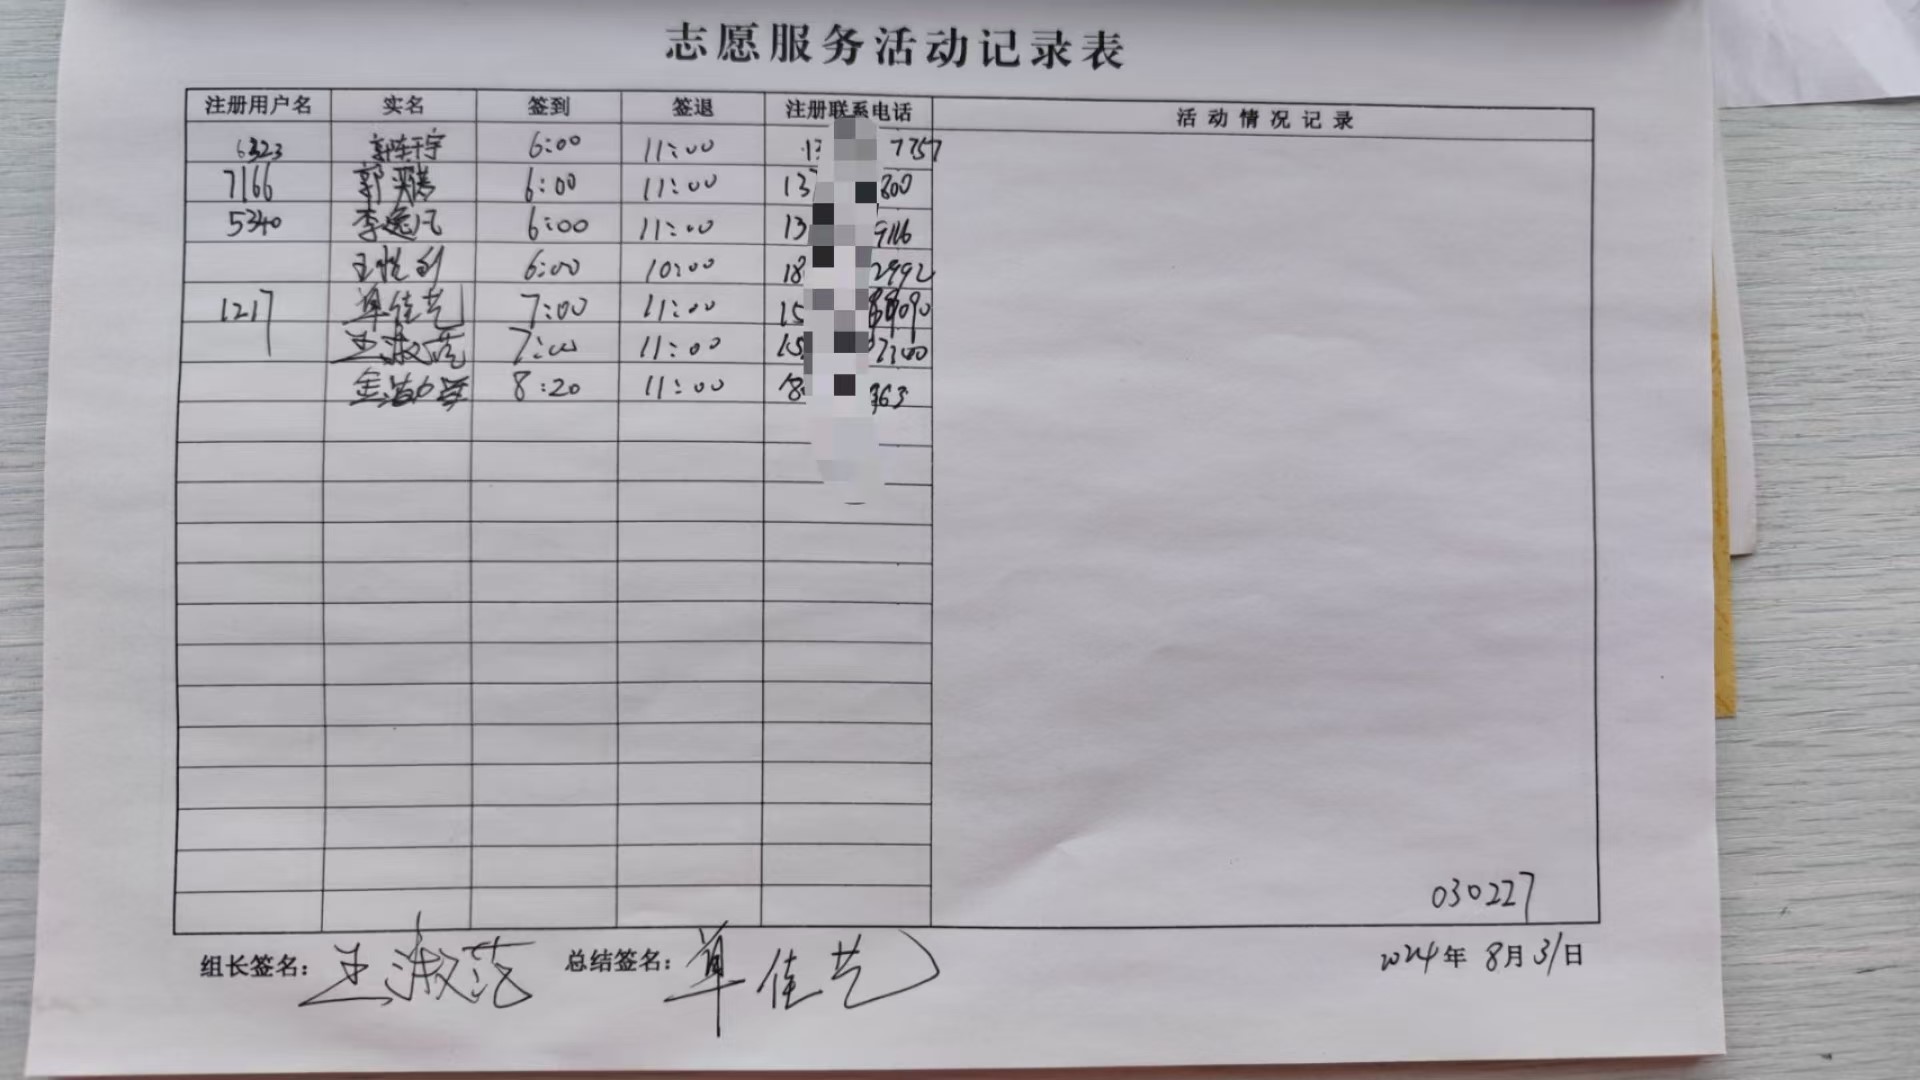 志愿服务活动记录表
注册用户名 实名 签到 签退 注册联系电话 活动情况记录
6323 6:00 11:00 13 7757
7166 郭 6:00 11:00 13 800
5340 李逸凡 6:00 11:00 13 9116
王悦 6:00 10:00 18 2992
1217 单佳艺 7:00 11:00 15 090
王淑范 7:00 11:00 15 7300
金 8:20 11:00 18 363
030227
组长签名: 王淑范 总结签名: 单佳艺 2024年 8月31日